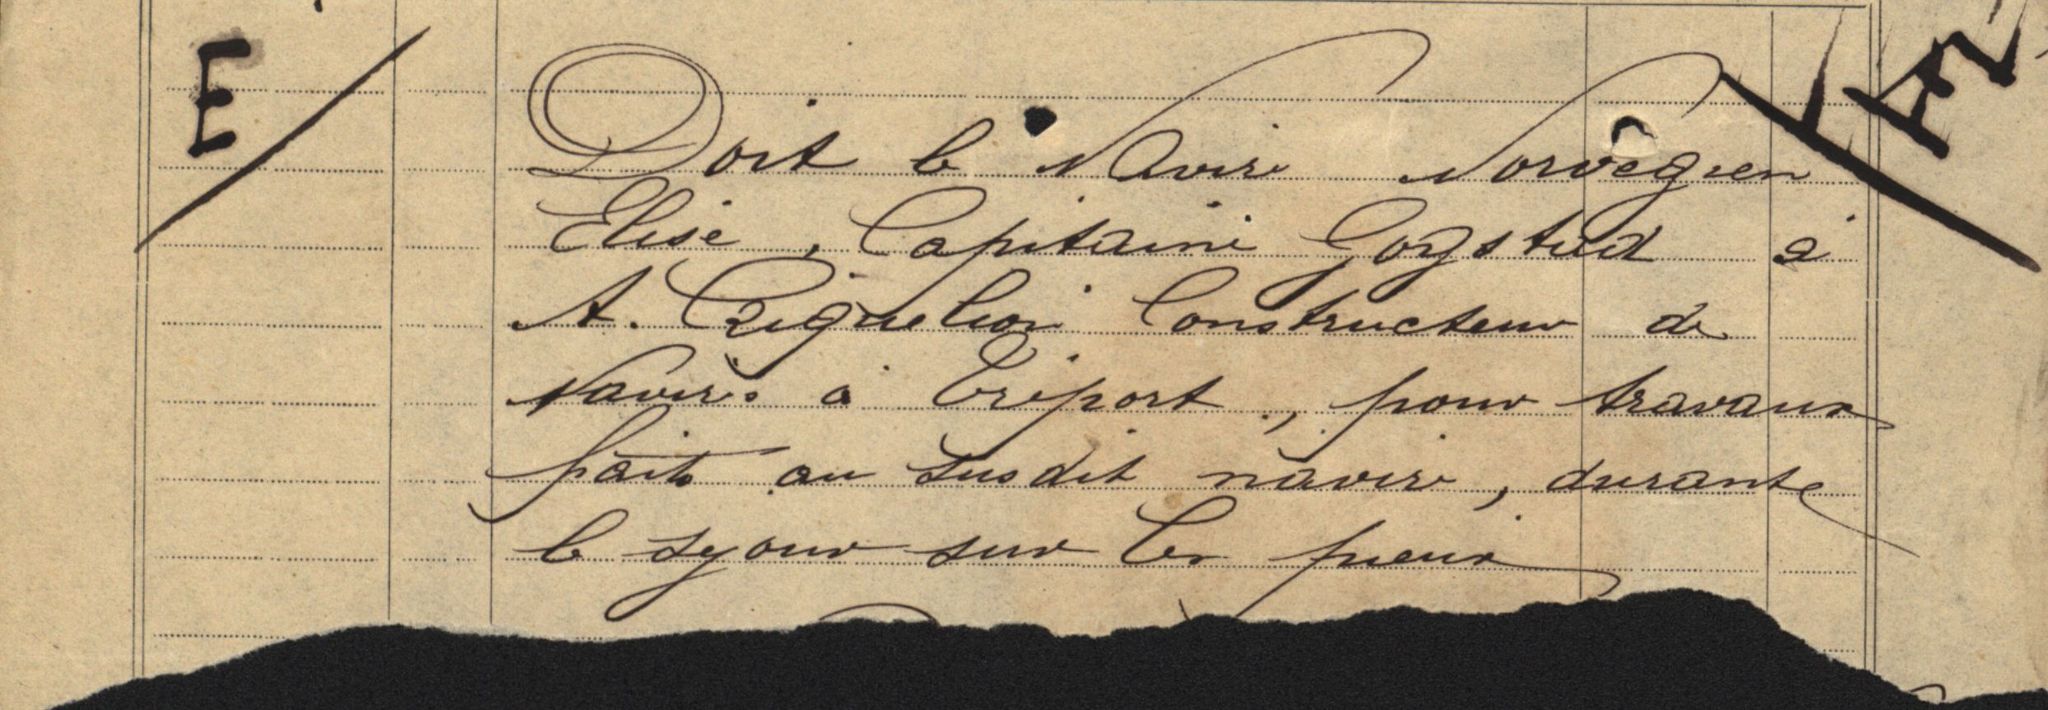 E
Doit le Navire Norvégien
Elise, Capitaine Gogstad à
A. Constructeur de
Navires à Tréport, pour travaux
faits au susdit navire, durant
le séjour sur les